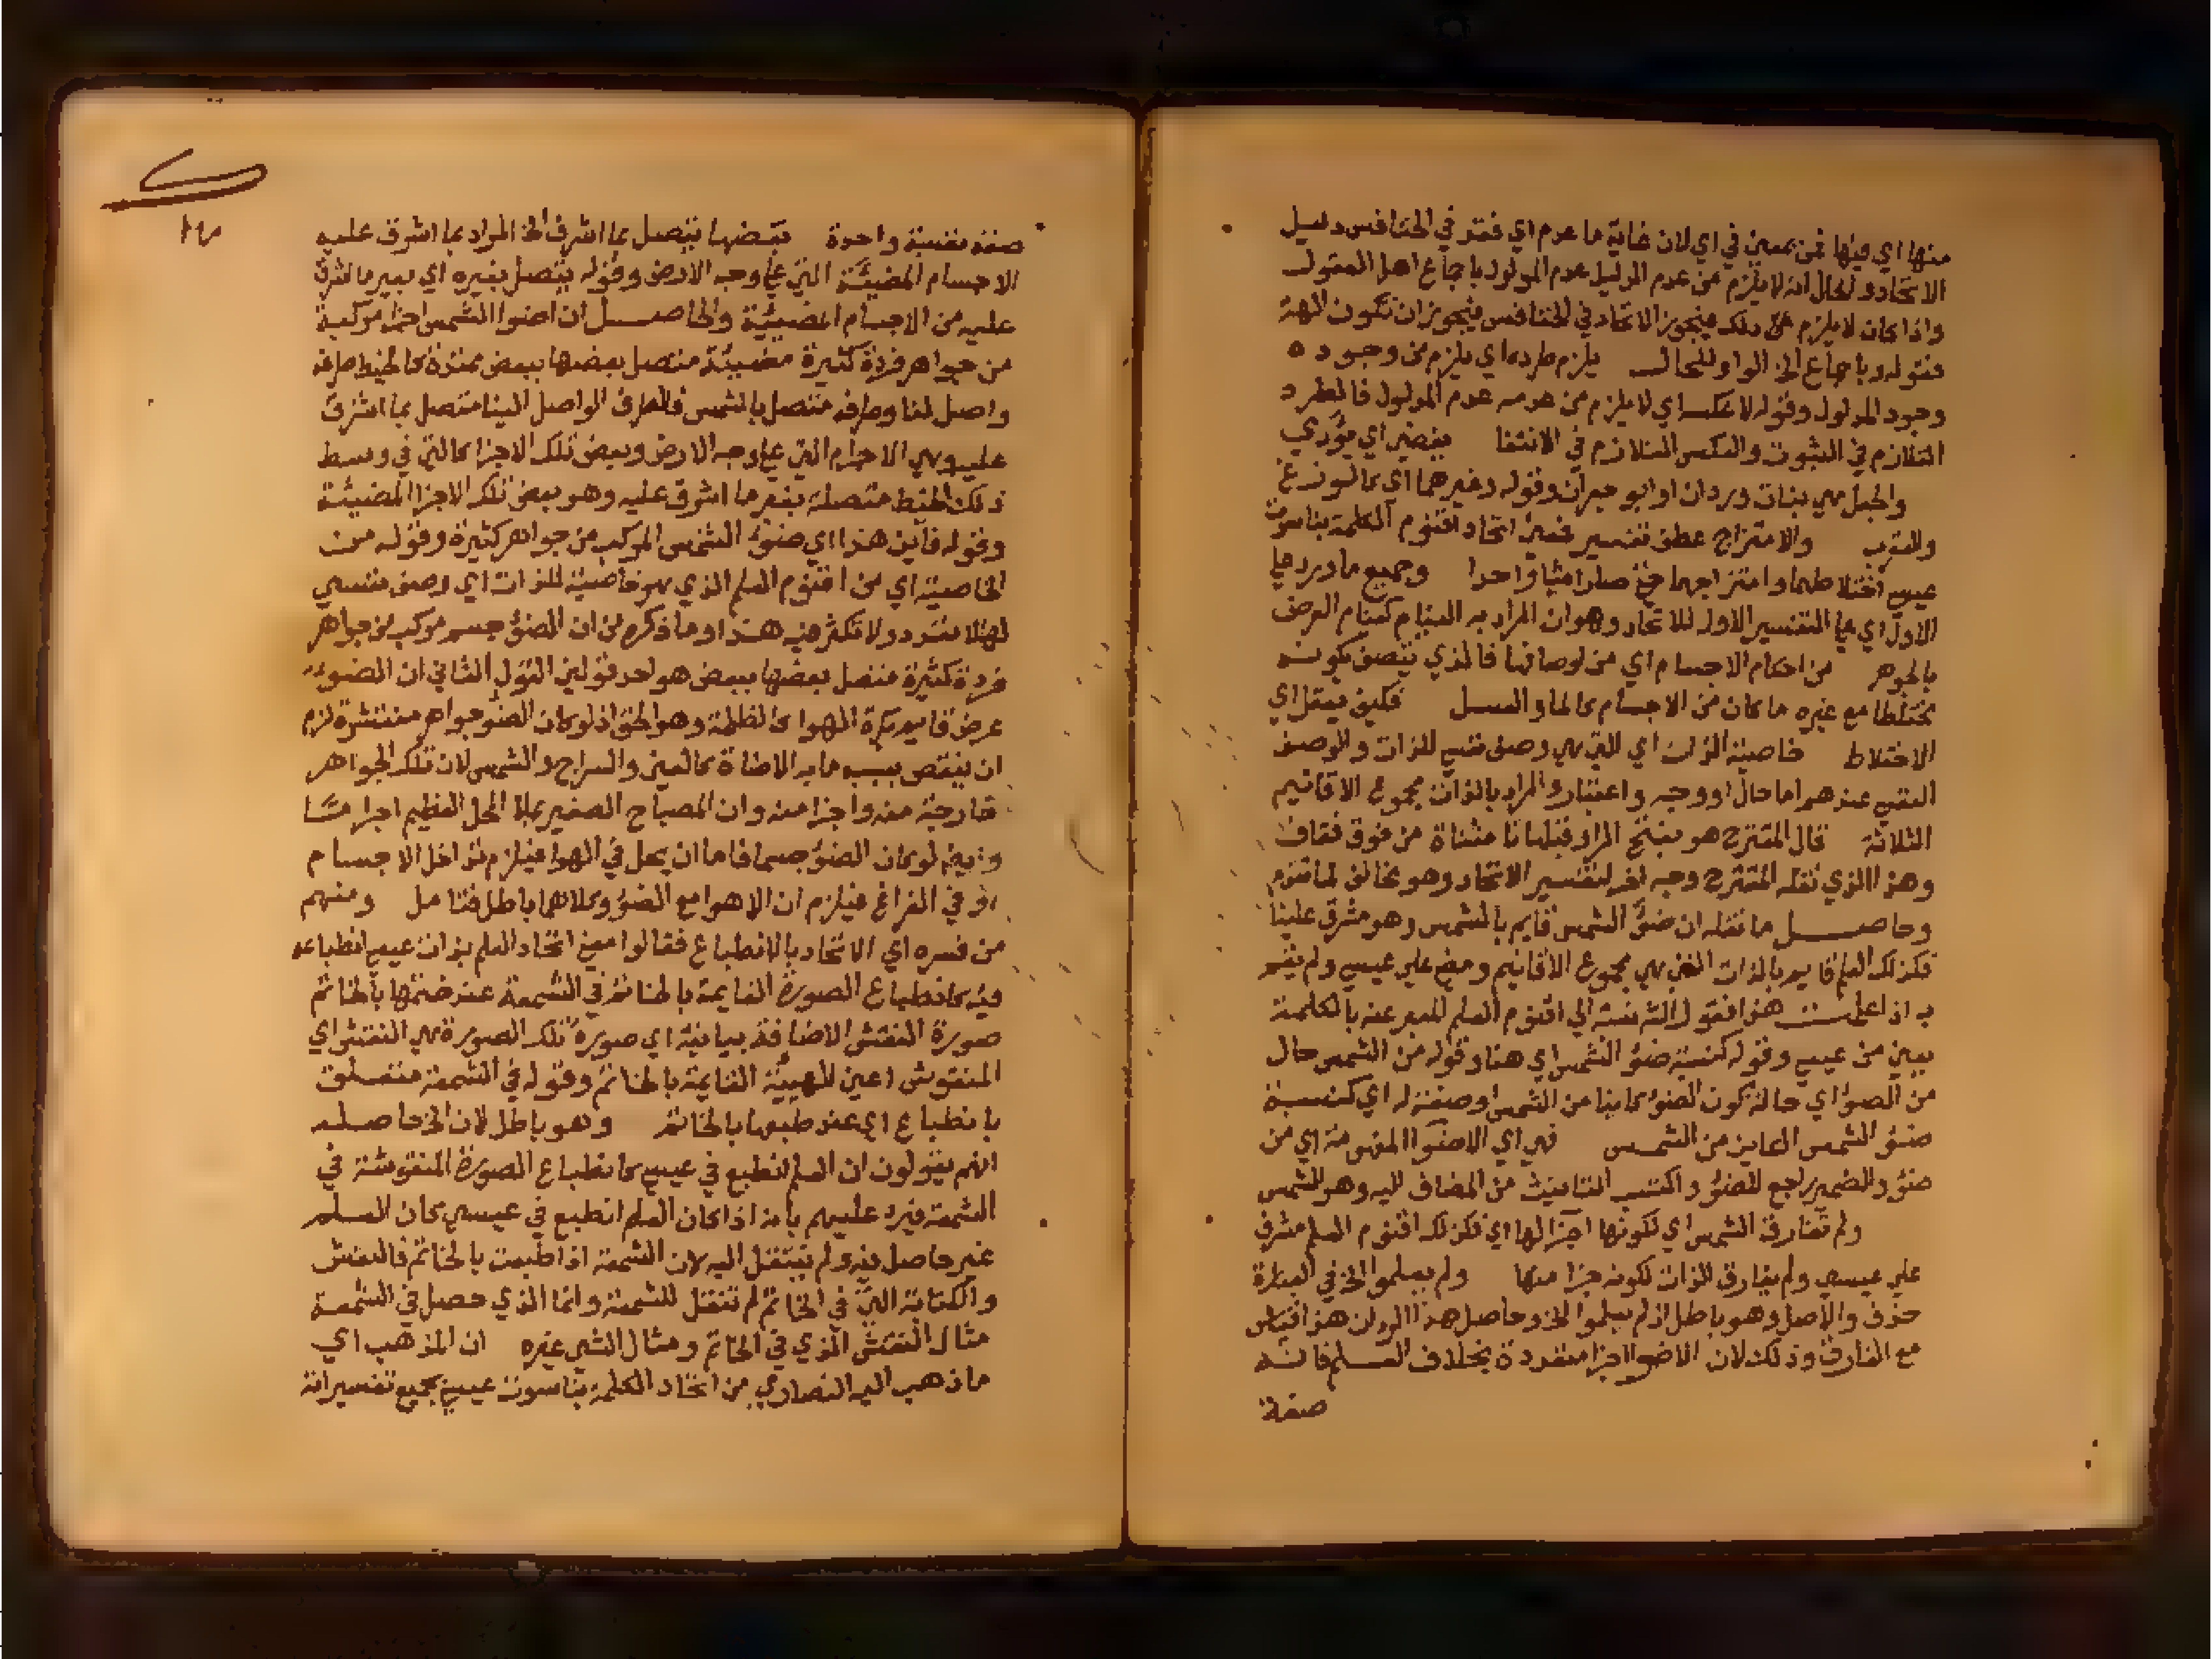 منها اي فيها فمن بمعني في اي لان غاية ما عدم اي فقد في الخنافس دليل
الاتحاد والحال انه لا يلزم من عدم الدليل عدم المدلول باجماع اهل العقول
واذا كان لا يلزم ذلك فيجوز الاتحاد في الخنافس فيجوز ان تكون الهة
فقوله وباجماع الخ الواو للحال يلزم طرده اي يلزم من وجوده
وجود المدلول وقوله لا عكسه اي لا يلزم من عدمه عدم المدلول فالطرد
التلازم في الثبوت والعكس التلازم في الانتفا يفضي اي يؤدي
والجعل هي بنات وردان او ابو جعران وقوله وغيرهما اي كالوزغ
والعقرب والامتزاج عطف تفسير فمعني اتحاد اقنوم الكلمة بناسوت
عيسي اختلاطهما وامتزاجهما حتي صارا شيا واحدا وجميع ما ورد علي
الاول اي علي التفسير الاول للاتحاد وهو ان المراد به القيام كقيام العرض
بالجوهر من احكام الاجسام اي من اوصافها فالذي يتصف بكونه
مختلطا مع غيره ما كان من الاجسام كالما والعسل فكيف يعقل اي
الاختلاط خاصية الذات اي التي هي وصف نفسي للذات والوصف
النفسي عندهم اما حال او وجه واعتبار والمراد بالذات مجموع الاقانيم
الثلاثة قال المقترح هو بفتح الراء وقبلها تا مثناة من فوق فقاف
وهذا الذي نقله المقترح وجه اخر لتفسير الاتحاد وهو مخالف لما تقدم
وحاصل ما نقله ان ضؤ الشمس قايم بالشمس وهو مشرق علينا
فكذلك العلم قايم بالذات التي هي مجموع الاقانيم ومفيض علي عيسي ولم يقم
به اذا علمت هذا فقوله نسبته اي اقنوم العلم المعبر عنه بالكلمة
يعني من عيسي وقوله كنسبة ضؤ الشمس اي هنا وقوله من الشمس حال
من الضؤ اي حالة كون الضؤ كاينا من الشمس او صفة له اي كنسبة
ضؤ الشمس الكاين من الشمس فهي اي الاضوا المفهومة اي من
ضؤ والضمير راجع للضؤ واكتسب التانيث من المضاف اليه وهو الشمس
ولم تفارق الشمس اي لكونها اجزا لها اي فكذلك اقنوم العلم مشرق
علي عيسي ولم يفارق الذات لكونه جزا منها ولم يعلموا الخ في العبارة
حذف والاصل وهو باطل اذ لم يعلموا الخ وحاصل هذا الرد ان هذا قياس
مع الفارق وذلك لان الاضوا اجزا منفردة بخلاف العلم فانه
صفة
صفة نفسية واحدة بعضها يتصل بما اشرق الخ المراد بما اشرق عليه
الاجسام المضيئة التي علي وجه الارض وقوله يتصل بغيره اي بغير ما اشرق
عليه من الاجسام المضيئة والحاصل ان اضوا الشمس اجزا مركبة
من جواهر فردة كثيرة مضيئة متصل بعضها ببعض ممتدة كالخيط طرفه
واصل لنا وطرفه متصل بالشمس فالطرف الواصل الينا متصل بما اشرق
عليه وهي الاجرام التي علي وجه الارض وبعض تلك الاجزا كالتي في وسط
ذلك الخيط متصلة بغير ما اشرق عليه وهو بعض تلك الاجزا المضيئة
وقوله فاين هذا اي ضؤ الشمس المركب من جواهر كثيرة وقوله من
الخاصية اي من اقنوم العلم الذي هو خاصية للذات اي وصف نفسي
لها لا تعدد ولا تكثر فيه هذا وما ذكره من ان الضؤ جسم مركب من جواهر
فردة كثيرة متصل بعضها ببعض هو احد قولين القول الثاني ان الضوء
عرض قايم بكرة الهوا كالظلمة وهو الحق اذ لو كان الضؤ جواهر منتشرة لزم
ان ينقص بسببه ما به الاضاة كالعين والسراج والشمس لان تلك الجواهر
خارجة منه واجزا منه وان المصباح الصغير يملا المحل العظيم اجراما
وايضا لو كان الضؤ جسما فاما ان يحل في الهوا فيلزم تداخل الاجسام
او في الفراغ فيلزم ان لا هوا مع الضؤ وكلاهما باطل فتامل ومنهم
من فسره اي الاتحاد بالانطباع فقالوا معني اتحاد العلم بذات عيسي انطباعه
فيه كانطباع الصورة القايمة بالخاتم في الشمعة عند ختمها بالخاتم
صورة النقش الاضافة بيانية اي صورة تلك الصورة هي النقش اي
المنقوش اعني الهيئة القايمة بالخاتم وقوله في الشمعة متعلق
بانطباع اي عند طبعها بالخاتم وهو باطل لان الخ حاصله
انهم يقولون ان العلم انطبع في عيسي كانطباع الصورة المنقوشة في
الشمعة فيرد عليهم بانه اذا كان العلم انطبع في عيسي كان العلم
غير حاصل فيه ولم ينتقل اليه لان الشمعة اذا طبعت بالخاتم فالنقش
والكتابة التي في الخاتم لم تنتقل للشمعة وانما الذي حصل في الشمعة
مثال النقش الذي في الخاتم ومثال الشي غيره ان المذهب اي
ما ذهب اليه النصاري من اتحاد الكلمة بناسوت عيسي بجميع تفسيراته